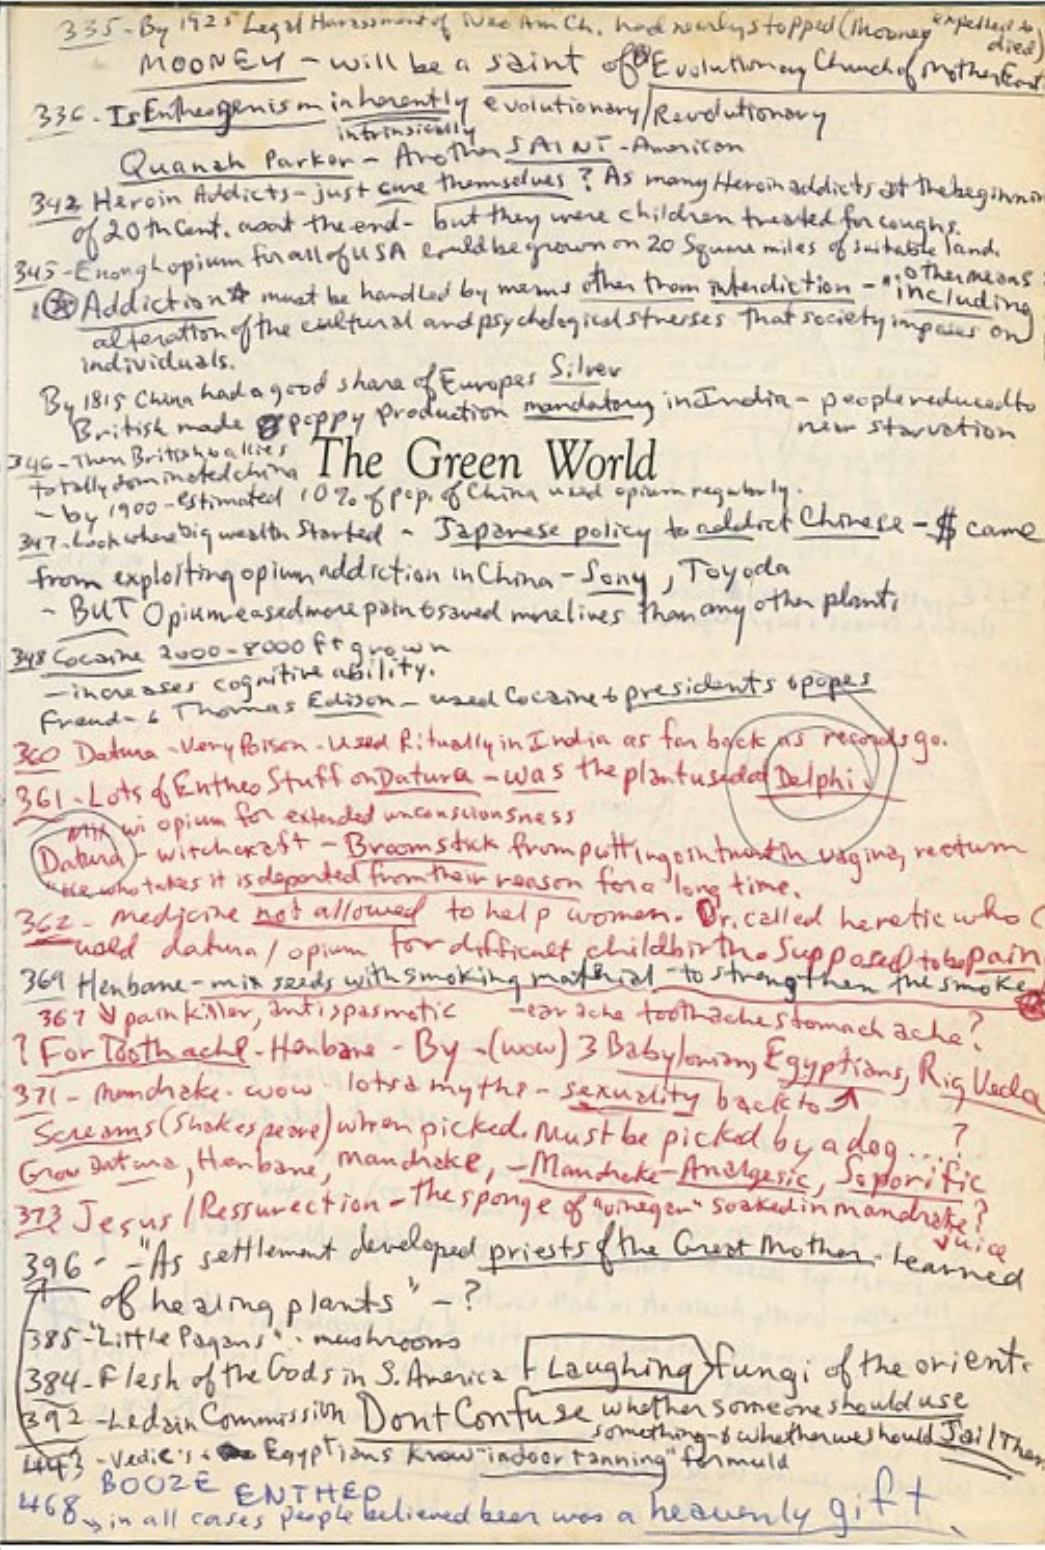 335 - By 1925 Legal Harassment of Neo Am Ch. had nearly stopped (Mooney expelled & died)
MOONEY - will be a saint of Evolutionary Church of Mother Earth
336 - Is Entheogenism inherently evolutionary/Revolutionary
intrinsically
Quanah Parker - Another SAINT - American
342 Heroin Addicts - just cure themselves? As many Heroin addicts at the beginnin
of 20th Cent. as at the end - but they were children treated for coughs.
345 - Enough opium for all of USA could be grown on 20 Square miles of suitable land.
Addiction must be handled by means other than interdiction - "other means including
alteration of the cultural and psychological stresses that society imposes on
individuals.
By 1815 China had a good share of Europes Silver
British made poppy production mandatory in India - people reduced to
near starvation
346 - Then British & allies
totally dominated china
The Green World
- by 1900 - estimated 10% of pop. of China used opium regularly.
347 - Look where big wealth started - Japanese policy to addict Chinese - $ came
from exploiting opium addiction in China - Sony, Toyoda
- BUT Opium eased more pain & saved more lives than any other plant.
348 Cocaine 2000-8000 ft grown
- increases cognitive ability.
Freud - & Thomas Edison - used Cocaine & presidents & popes
360 Datura - Very Poison - Used Ritually in India as far back as records go.
361 - Lots of Entheo Stuff on Datura - was the plant used at Delphi.
mix w/ opium for extended unconsciousness
Datura - witchcraft - Broomstick from putting ointment in vagina, rectum
"He who takes it is deported from their reason for a long time.
362 - Medicine not allowed to help women. Dr. called heretic who
used datura/opium for difficult childbirth. Supposed to be pain
369 Henbane - mix seeds with smoking material - to strengthen the smoke
367 pain killer, antispasmotic - ear ache toothache stomach ache?
? For Toothache - Henbane - By - (wow) 3 Babylonian, Egyptians, Rig Veda
371 - Mandrake - wow lotsa myths - sexuality back to
Screams (Shakespeare) when picked. Must be picked by a dog...?
Grow Datura, Henbane, mandrake, - Mandrake - Analgesic, Soporific
373 Jesus / Ressurection - the sponge of "vinegar" soaked in mandrake juice?
396 - "As settlement developed priests of the Great Mother. learned
of healing plants" - ?
385 - "Little Pagans" - mushrooms
384 - Flesh of the Gods in S. America Laughing fungi of the orient.
392 - Ledain Commission Dont Confuse whether someone should use
something & whether we should Jail Them
443 - Vedic's & Egyptians knew "indoor tanning" formula
BOOZE ENTHEO
468 in all cases people believed beer was a heavenly gift.